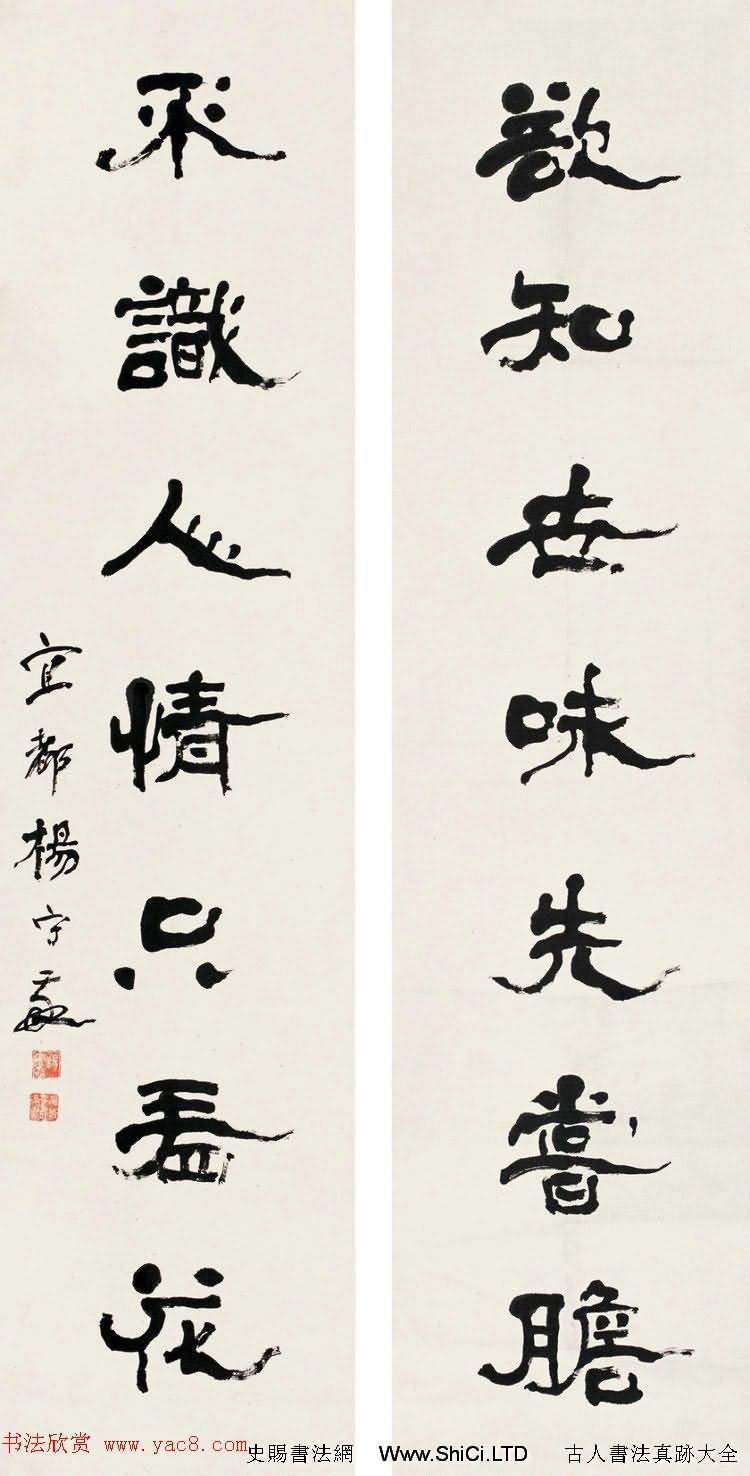 欲知世味先嘗膽
不識人情只看花
宜都楊守敬
书法欣赏 www.yac8.com
史賜書法網 Www.ShiCi.LTD 古人書法真跡大全